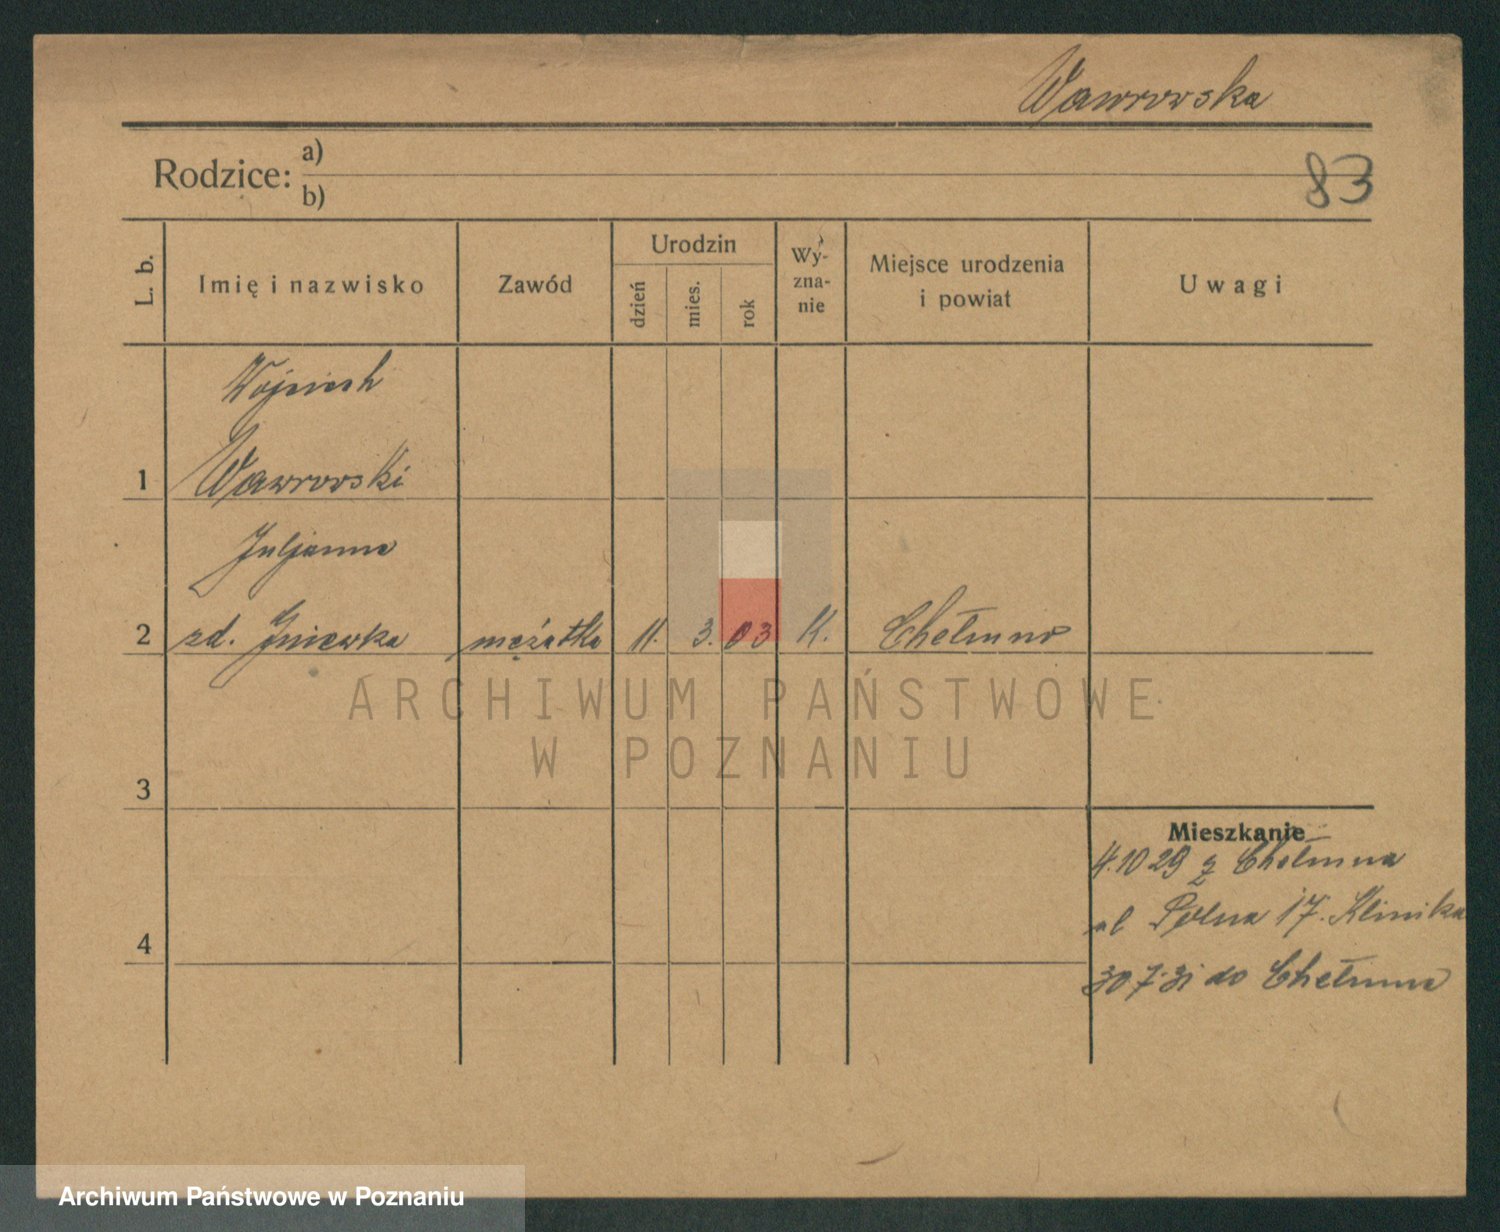 Wawrowska
Rodzice: a)
b)
83
L. b.
Imię i nazwisko
Zawód
Urodzin
dzień
mies.
rok
Wy-
zna-
nie
Miejsce urodzenia
i powiat
Uwagi
Wojciech
1 Wawrowski
Juljanna
2 zd. mężatka 11. 3. 03 K. Chełmno
ARCHIWUM PAŃSTWOWE
W POZNANIU
3
Mieszkanie
4.10 29 z Chełmna
ul Polna 17. Klinika
4
30 7·31 do Chełmna
Archiwum Państwowe w Poznaniu